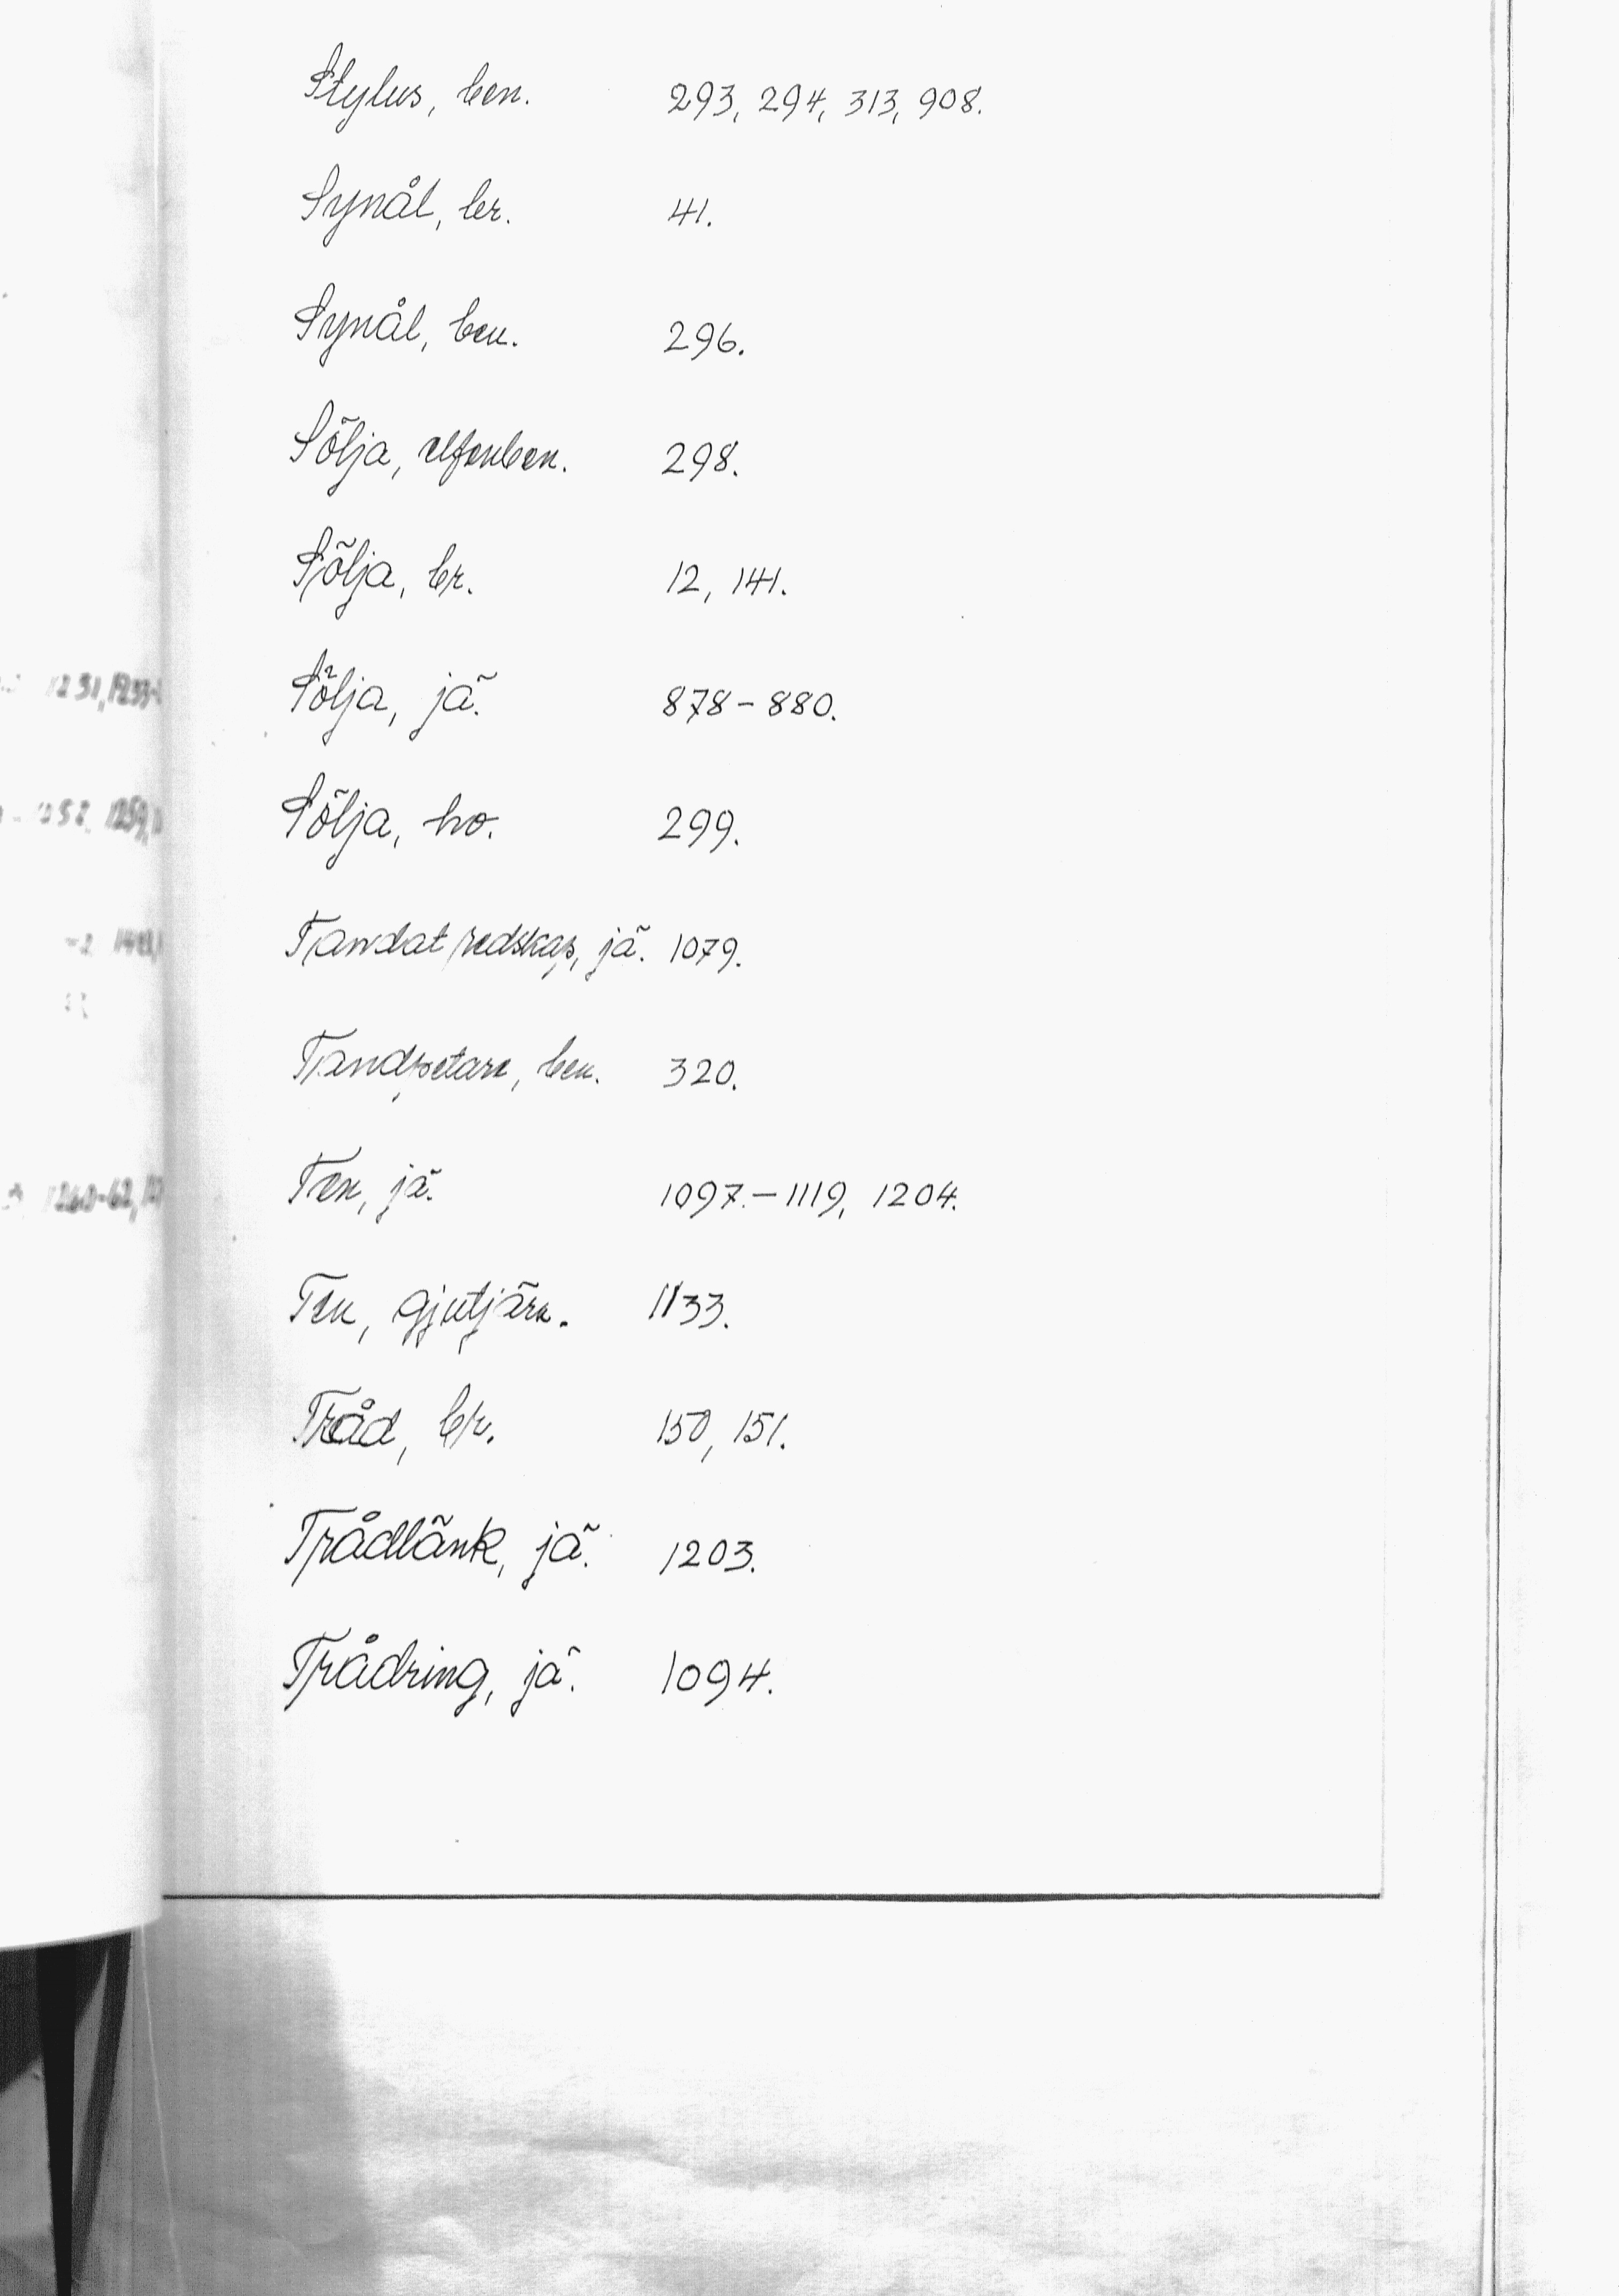 Stylus, ben. 293, 294, 313, 908.
Synål, br. 41.
Synål, ben. 296.
Sölja, elfenben. 298.
Sölja, br. 12, 141.
Sölja, jä. 878-880.
Sölja, ho. 299.
Tandat redskap, jä. 1079.
Tandpetare, ben. 320.
Ten, jä. 1097.-1119, 1204.
Ten, gjutjärn. 1133.
Tråd, br. 150, 151.
Trådlänk, jä. 1203.
Trådring, jä. 1094.